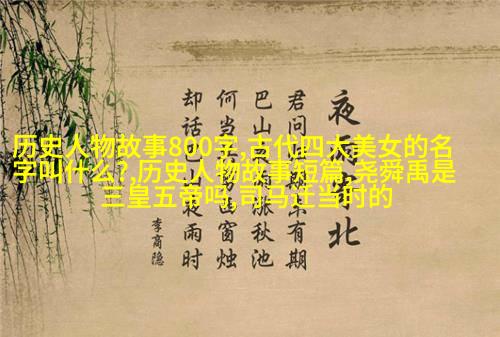 历史人物故事800字,古代四大美女的名
字叫什么?,历史人物故事短篇,尧舜禹是
三皇五帝吗,司马迁当时的
夜北
君问有期
巴山涨秋池
何当窗烛
却话夜雨时
李商隐